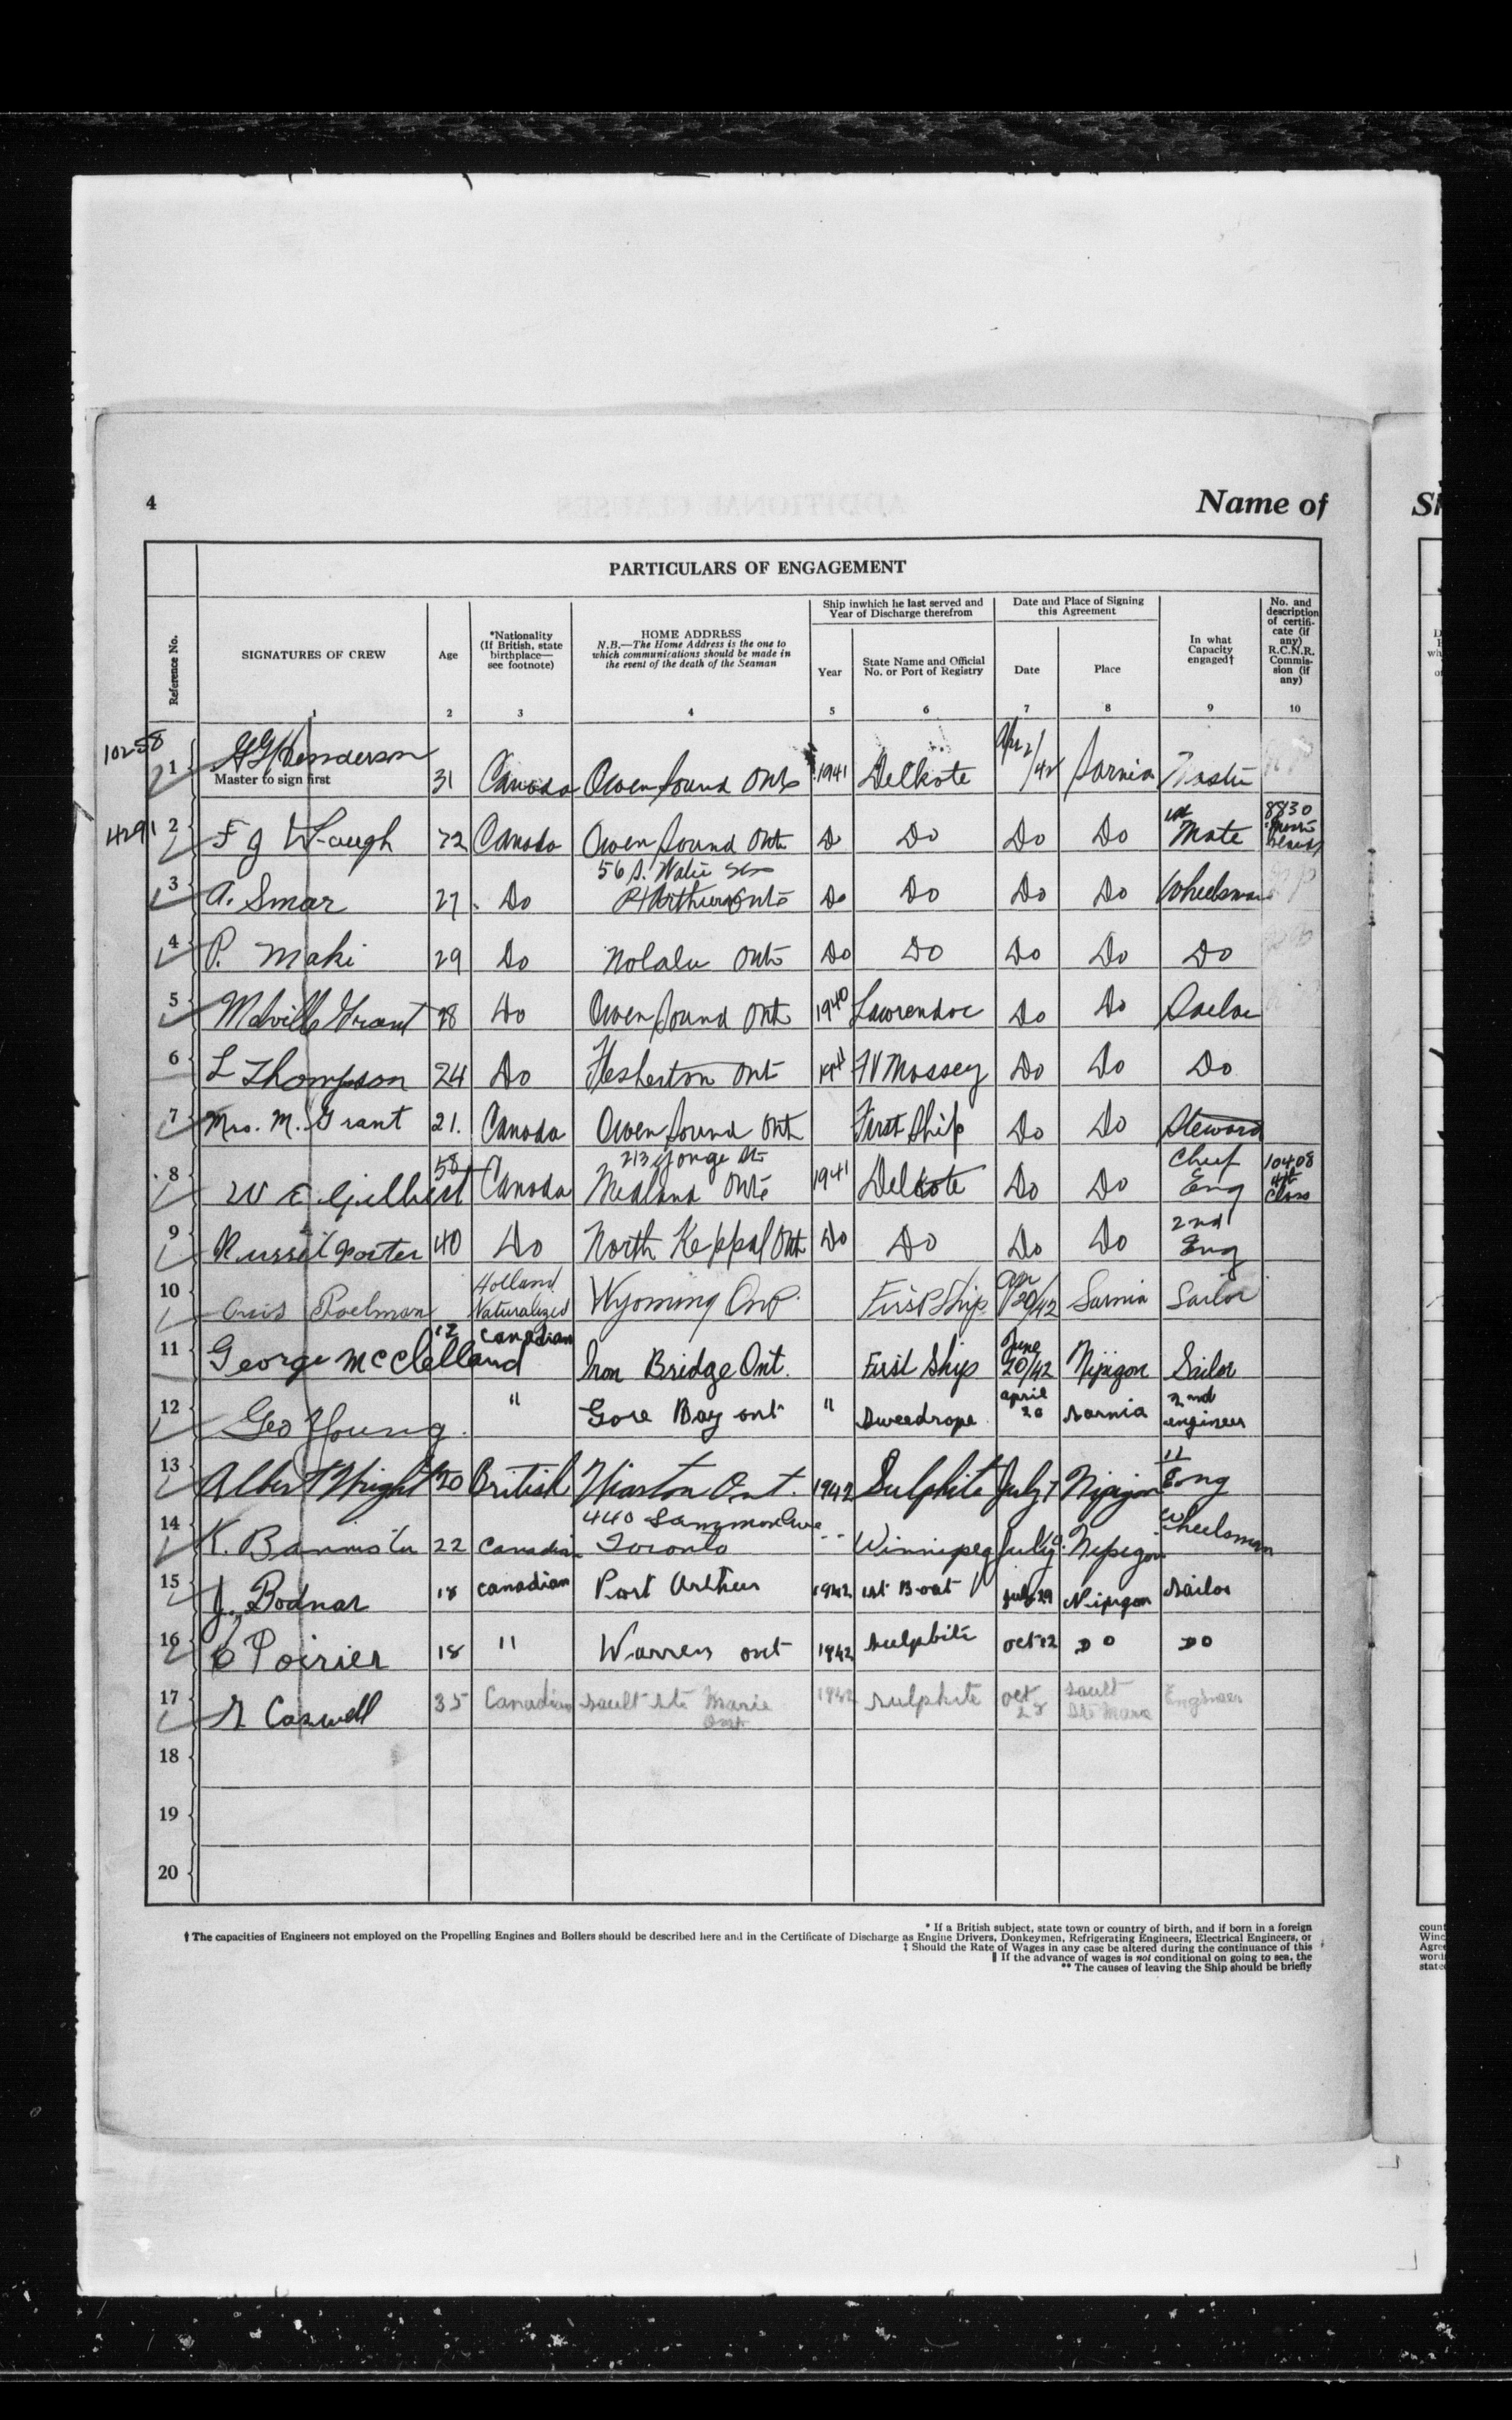 4
Name of
PARTICULARS OF ENGAGEMENT
Reference No.
SIGNATURES OF CREW
Age
*Nationality
(If British, state
birthplace—
see footnote)
HOME ADDRESS
N.B.—The Home Address is the one to
which communications should be made in
the event of the death of the Seaman
Ship inwhich he last served and
Year of Discharge therefrom
Year
State Name and Official
No. or Port of Registry
Date and Place of Signing
this Agreement
Date
Place
In what
Capacity
engaged†
No. and
description
of certifi-
cate (if
any)
R.C.N.R.
Commis-
sion (if
any)
1 2 3 4 5 6 7 8 9 10
10258
1 Henderson 31 Canada Owen Sound Ont 1941 Delkote Apr 2/42 Sarnia Master
Master to sign first
4291
2 F J Waugh 72 Canada Owen Sound Ont Do Do Do Do Mate 8830
3 A. Smar 27 Do 56 S. Ont Do Do Do Do Wheelsman
4 P. Maki 29 Do Nolalu Ont Do Do Do Do Do
5 Melville Grant 18 Do Owen Sound Ont 1940 Lawrendoc Do Do Sailor
6 L Thompson 24 Do Flesherton Ont 1941 Massey Do Do Do
7 Mrs. M. Grant 21. Canada Owen Sound Ont First Ship Do Do Steward
8 W E Gilbert 58 Canada 213 Yonge St Midland Ont 1941 Delkote Do Do Chief Eng 10408 Class
9 Russel Porter 40 Do North Keppel Ont Do Do Do Do 2nd Eng
10 Roelman Holland Naturalized Wyoming Ont First Ship Apr 20/42 Sarnia Sailor
11 George McClelland Canadian Iron Bridge Ont. First Ship June 20/42 Nipigon Sailor
12 Geo Young " Gore Bay ont " April 20 Sarnia 2nd engineer
13 Albert Wright 20 British Wiarton Ont. 1942 Sulphite July 7 Nipigon " Eng
14 K. Bannister 22 Canadian 440 Sammon Ave Toronto Winnipeg July Nipigon Wheelsman
15 J. Bodnar 18 Canadian Port Arthur 1942 1st Boat July 29 Nipigon Sailor
16 C Poirier 18 " Warren ont 1942 Sulphite Oct 12 DO DO
17 Caswell 35 Canadian Sault Ste Marie Ont 1942 Sulphite Oct 28 Sault Ste Marie Engineer
18
19
20
* If a British subject, state town or country of birth, and if born in a foreign
† The capacities of Engineers not employed on the Propelling Engines and Boilers should be described here and in the Certificate of Discharge as Engine Drivers, Donkeymen, Refrigerating Engineers, Electrical Engineers, or
‡ Should the Rate of Wages in any case be altered during the continuance of this
‖ If the advance of wages is not conditional on going to sea, the
** The causes of leaving the Ship should be briefly